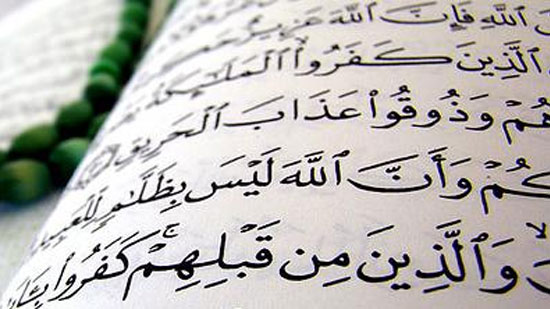 ٱللَّهِ فَإِنَّ ٱللَّهَ عَزِيزٌ
ٱلَّذِينَ كَفَرُوا۟ ٱلْمَلَـٰٓئِكَةُ
هُمْ وَذُوقُوا۟ عَذَابَ ٱلْحَرِيقِ
كُمْ وَأَنَّ ٱللَّهَ لَيْسَ بِظَلَّـٰمٍ لِّلْعَبِيدِ
وَٱلَّذِينَ مِن قَبْلِهِمْ ۚ كَفَرُوا۟